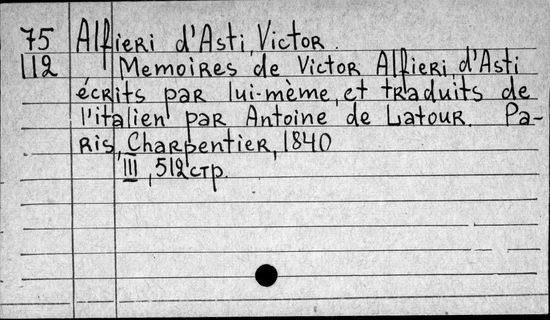 75 Alfieri d'Asti, Victor.
112 Memoires de Victor Alfieri d'Asti
écrits par lui-mème, et traduits de
l'italien par Antoine de Latour. Pa-
ris, Charpentier, 1840
III, 512 стр.